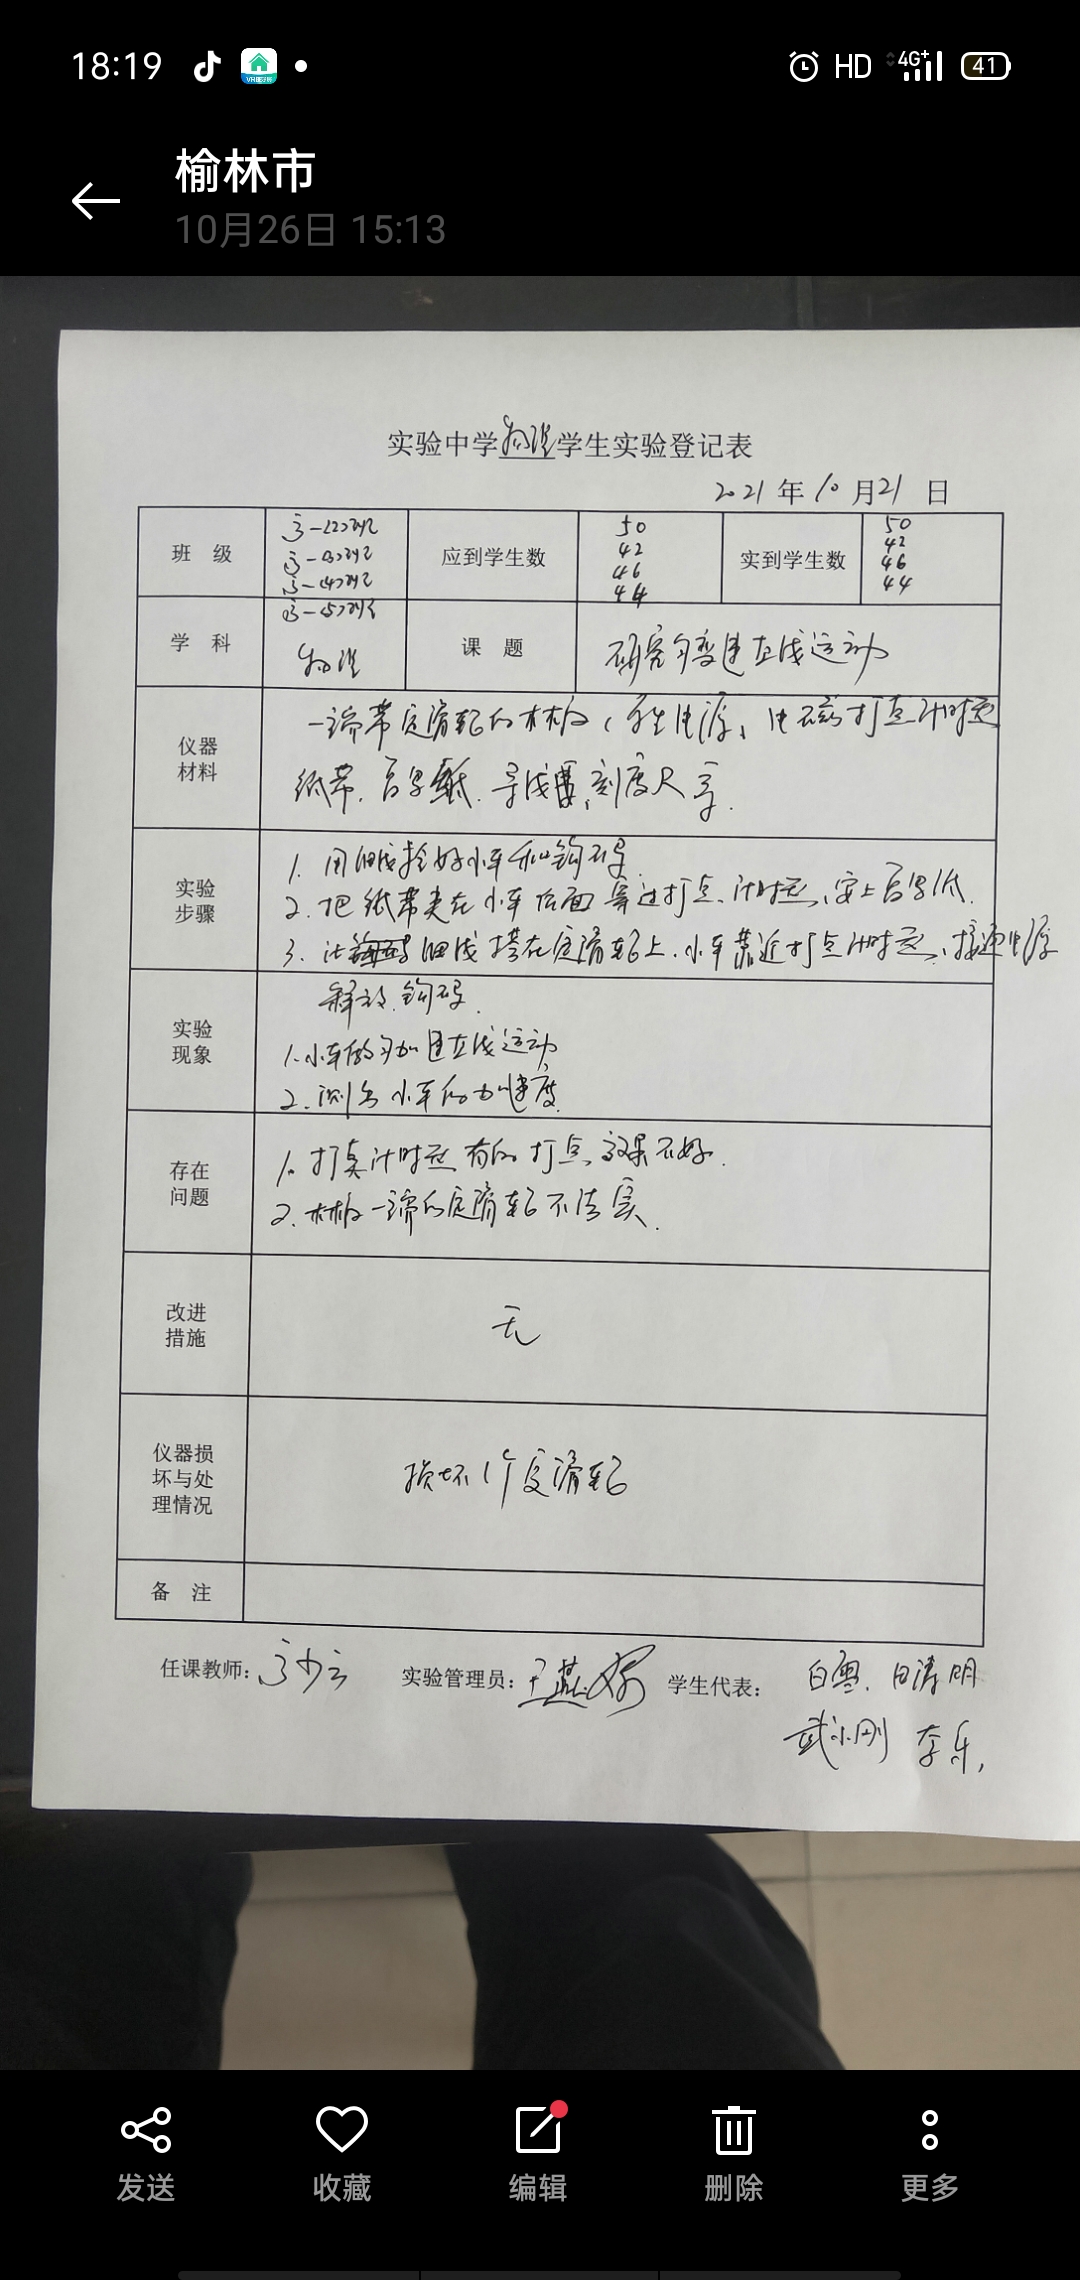 18:19
HD 4G+ 41
榆林市
10月26日 15:13
实验中学物理学生实验登记表
2021年10月21日
班 级
高一(2)班
高一(3)班
高一(4)班
高一(5)班
应到学生数
50
42
46
44
实到学生数
50
42
46
44
学 科
物理
课 题
研究匀变速直线运动
仪器
材料
一端带定滑轮的木板、学生电源、电磁打点计时器
纸带、复写纸、导线、刻度尺等.
实验
步骤
1. 用细线拴好小车和钩码.
2. 把纸带夹在小车后面穿过打点计时器,安上复写纸.
3. 让细线搭在定滑轮上.小车靠近打点计时器,接通电源
释放钩码.
实验
现象
1.小车做匀加速直线运动
2.测出小车的加速度.
存在
问题
1. 打点计时器有的打点效果不好.
2. 木板一端的定滑轮不结实.
改进
措施
无
仪器损
坏与处
理情况
损坏1个定滑轮
备 注
任课教师:
实验管理员:
学生代表:
白雪. 白涛明
武小刚 李乐,
发送
收藏
编辑
删除
更多